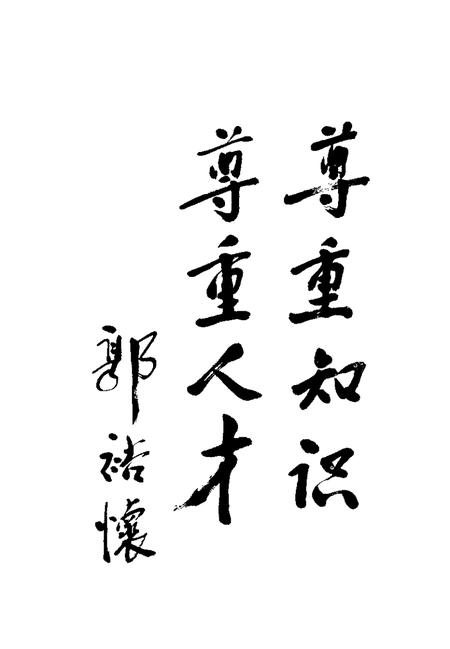 尊重知识
尊重人才
郭裕懷